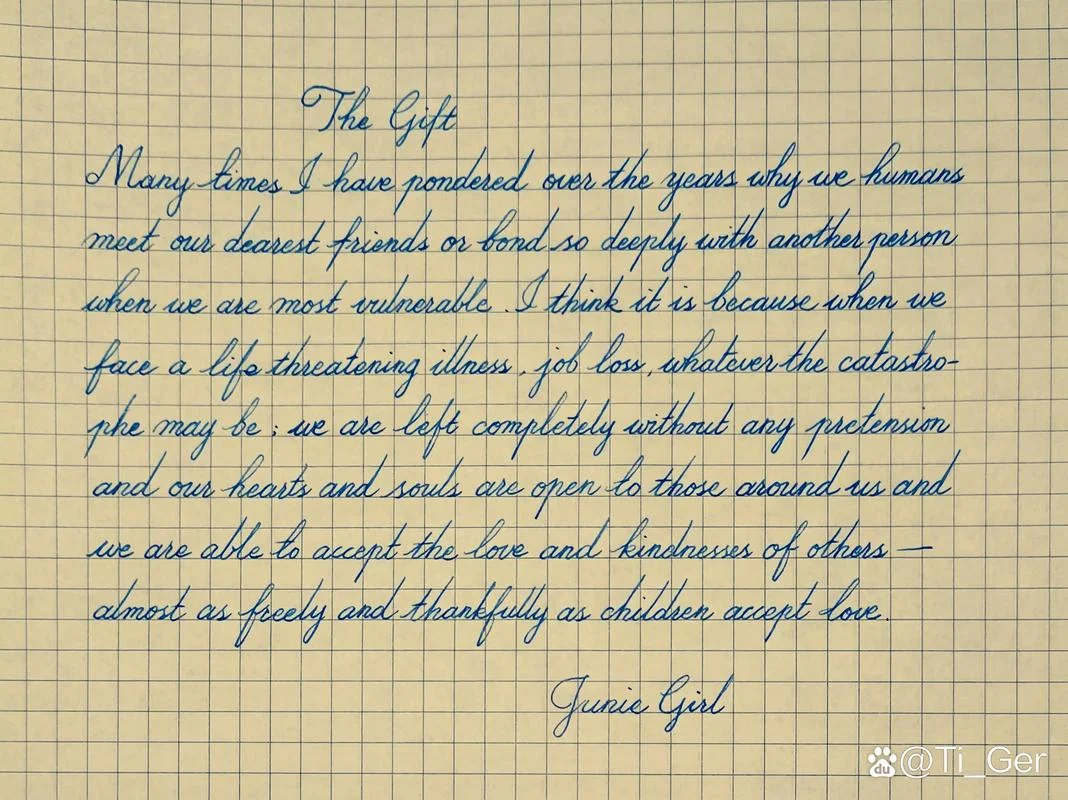 The Gift
Many times I have pondered over the years why we humans
meet our dearest friends or bond so deeply with another person
when we are most vulnerable. I think it is because when we
face a life threatening illness, job loss, whatever the catastro-
phe may be; we are left completely without any pretension
and our hearts and souls are open to those around us and
we are able to accept the love and kindnesses of others —
almost as freely and thankfully as children accept love.
Junie Girl
du @Ti_Ger